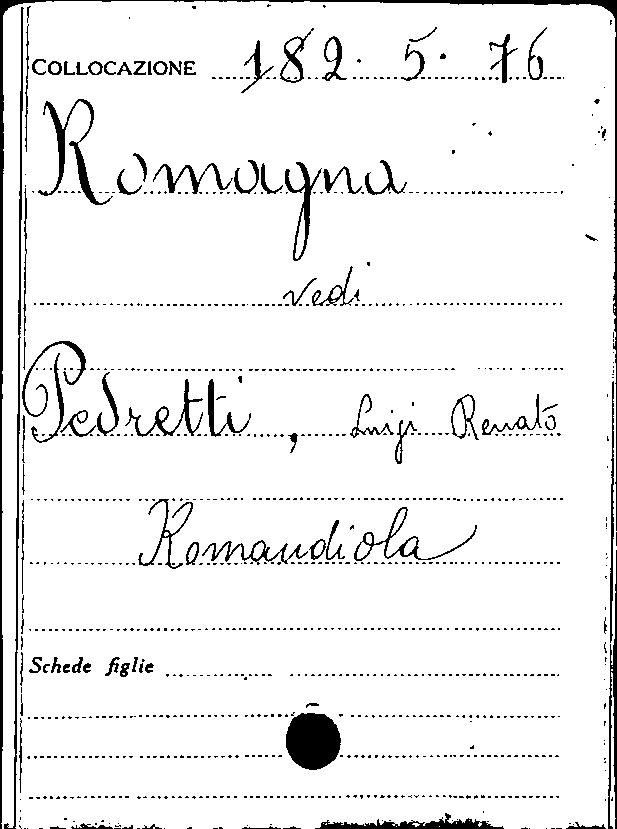 COLLOCAZIONE 182. 5. 76
Romagna
vedi
Pedretti, Luigi Renato
Romandiola
Schede figlie